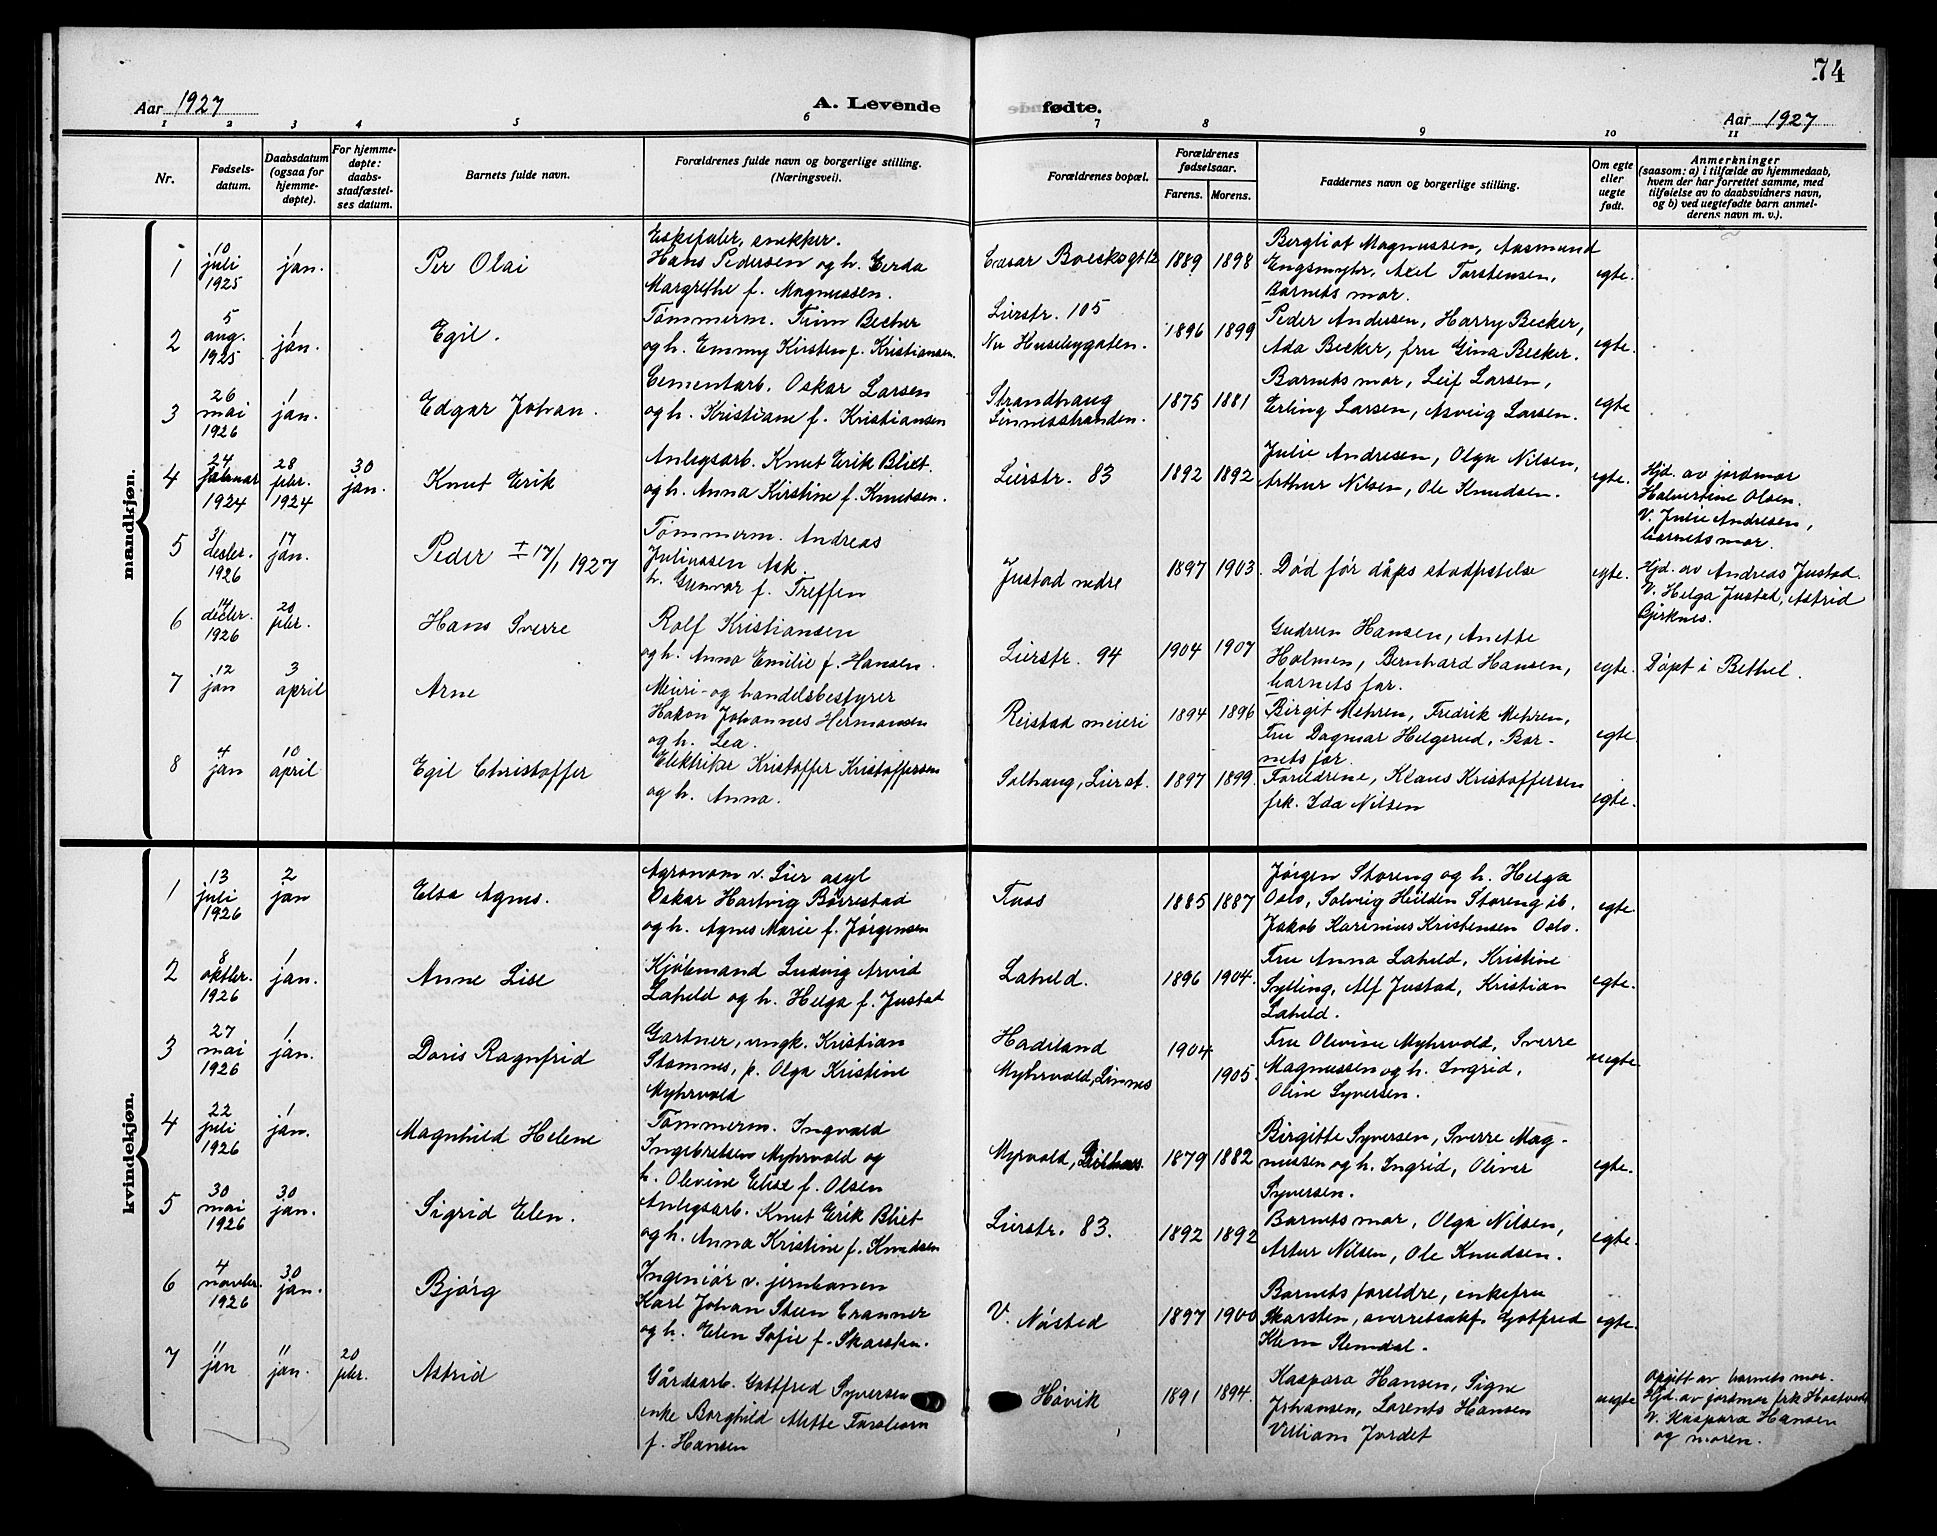 74
Aar 1927
A. Levende fødte.
Aar 1927
1 2 3 4 5 6 7 8 9 10 11
Nr.
Fødsels-
datum.
Daabsdatum
(ogsaa for
hjemme-
døpte).
For hjemme-
døpte:
daabs-
stadfæstel-
ses datum.
Barnets fulde navn.
Forældrenes fulde navn og borgerlige stilling.
(Næringsvei).
Forældrenes bopæl.
Forældrenes
fødselsaar.
Farens. Morens.
Faddernes navn og borgerlige stilling.
Om egte
eller
uegte
født.
Anmerkninger
(saasom: a) i tilfælde av hjemmedaab,
hvem der har forrettet samme, med
tilføielse av to daabsvidners navn,
og b) ved uegtefødte barn anmel-
derens navn m. v.).
mandkjøn.
1
10
juli
1925
1
jan.
Per Olai
snekker.
Hans Pedersen og h. Gerda
Margrethe f. Magnussen.
1889 1898
Bergliot Magnussen, Aasmund
Axel Torstensen,
Barnets mor.
egte.
2
5
aug.
1925
1
jan.
Egil.
Tømmerm.
og h. Emmy Kirsten f. Kristiansen.
Lierstr. 105
Nu Husebygaten.
1896 1899
Peder Andersen, Harry Becker,
Ada Becker, fru Gina Becker.
egte.
3
26
mai
1926
1
jan.
Edgar Johan.
Cementarb. Oskar Larsen
og h. Kristiane f. Kristiansen
Strandhaug
Linnesstranden.
1875 1881
Barnets mor, Leif Larsen,
Erling Larsen, Asveig Larsen.
egte
4
24
februar
1924
28
febr.
1924
30
jan.
Knut Erik
Anlegsarb. Knut Erik Bliet.
og h. Anna Kirstine f. Knutsen.
Lierstr. 83
1892 1892
Julie Andresen, Olga Nilsen,
Arthur Nilsen, Ole Knudsen.
egte.
Hjd. av jordmor
Halvertine Olsen.
V. Julie Andresen,
barnets mor.
5
31
desbr.
1926
17
jan.
Peder ‡ 17/1 1927
Tømmerm. Andreas
Juliussen Ask
h. Gunvor f. Treffen
Justad nedre
1897 1903.
Død før dåps stadfestelse
egte.
Hjd. av Andreas Justad.
V. Helga Justad, Astrid
Gjerknes.
6
14
desbr.
1926
20
febr.
Hans Sverre
Rolf Kristiansen
og h. Anna Emilie f. Hansen.
Lierstr. 94
1904 1907
Gudrun Hansen, Anette
Holmen, Bernhard Hansen,
barnets far.
egte.
Døpt i Bethel.
7
12
jan
3
april
Arne
Meieri- og handelsbestyrer
Hakon Johannes Hermansen
og h. Lea.
Reistad meieri
1894 1896
Birgit Mehren, Fredrik Mehren,
Fru Dagmar Helgerud, Bar-
nets far.
egte.
8
4
jan
10
april
Egil Christoffer
Elektriker Kristoffer Kristoffersen
og h. Anna.
Solhaug, Lierst.
1897 1899.
Foreldrene, Klaus Kristoffersen
frk. Ida Nilsen
egte.
kvindekjøn.
1
13
juli
1926
2
jan
Elsa Agnes.
Agronom v. Lier asyl
Oskar Hartvig Børrestad
og h. Agnes Marie f. Jørgensen
Foss
1885 1887
Jørgen Storeng og h. Helga
Oslo, Solveig Storeng ib.
Jakob Karinius Kristensen Oslo.
egte.
2
8
oktbr.
1926
1
jan.
Anne Lise
Kjøbmand Ludvig Arvid
Laheld og h. Helga f. Justad
Laheld.
1896 1904.
Fru Anna Laheld, Kristine
Sylling, Alf Justad, Kristian
Laheld.
egte.
3
27
mai
1926
1
jan.
Doris Ragnfrid
Gartner, ungk. Kristian
Stamnes, p. Olga Kristine
Myhrvold
Hadeland
Myhrvold, Linnes
1904
1905.
Fru Olivine Myhrvold, Sverre
Magnussen og h. Ingrid,
Oline Syversen.
uegte
4
22
juli
1926
1
jan.
Magnhild Helene
Tømmerm. Ingvald
Ingebretsen Myhrvold og
h. Olivine Elise f. Olsen
Myrvold,
1879 1882
Birgitte Syversen, Sverre Mag-
nussen og h. Ingrid, Oliver
Syversen.
egte.
5
30
mai
1926
30
jan.
Sigrid Elen.
Anlegsarb. Knut Erik Bliet
og h. Anna Kristine f. Knudsen
Lierstr. 83.
1892 1892
Barnets mor, Olga Nilsen,
Artur Nilsen, Ole Knudsen.
egte.
6
4
novbr.
1926
30
jan.
Bjørg
Ingeniør v. jernbanen
Karl Johan Steen Cranner
og h. Elen Sofie f. Skarsten.
V. Nøsted
1897 1900
Barnets foreldre, enkefru
Skarsten, overretssakf. Gotfred
Klem Stemdal.
egte.
7
11
jan
11
jan.
20
febr.
Astrid
Gårdsarb. Gottfred Syversen
enke Borghild Mette
f. Hansen
Høvik
1891 1894.
Kaspara Hansen, Signe
Johansen, Lorents Hansen
Villiam Jordet
uegte
Opgitt av barnets mor.
Hjd. av jordmor frk
V. Kaspara Hansen
og moren.